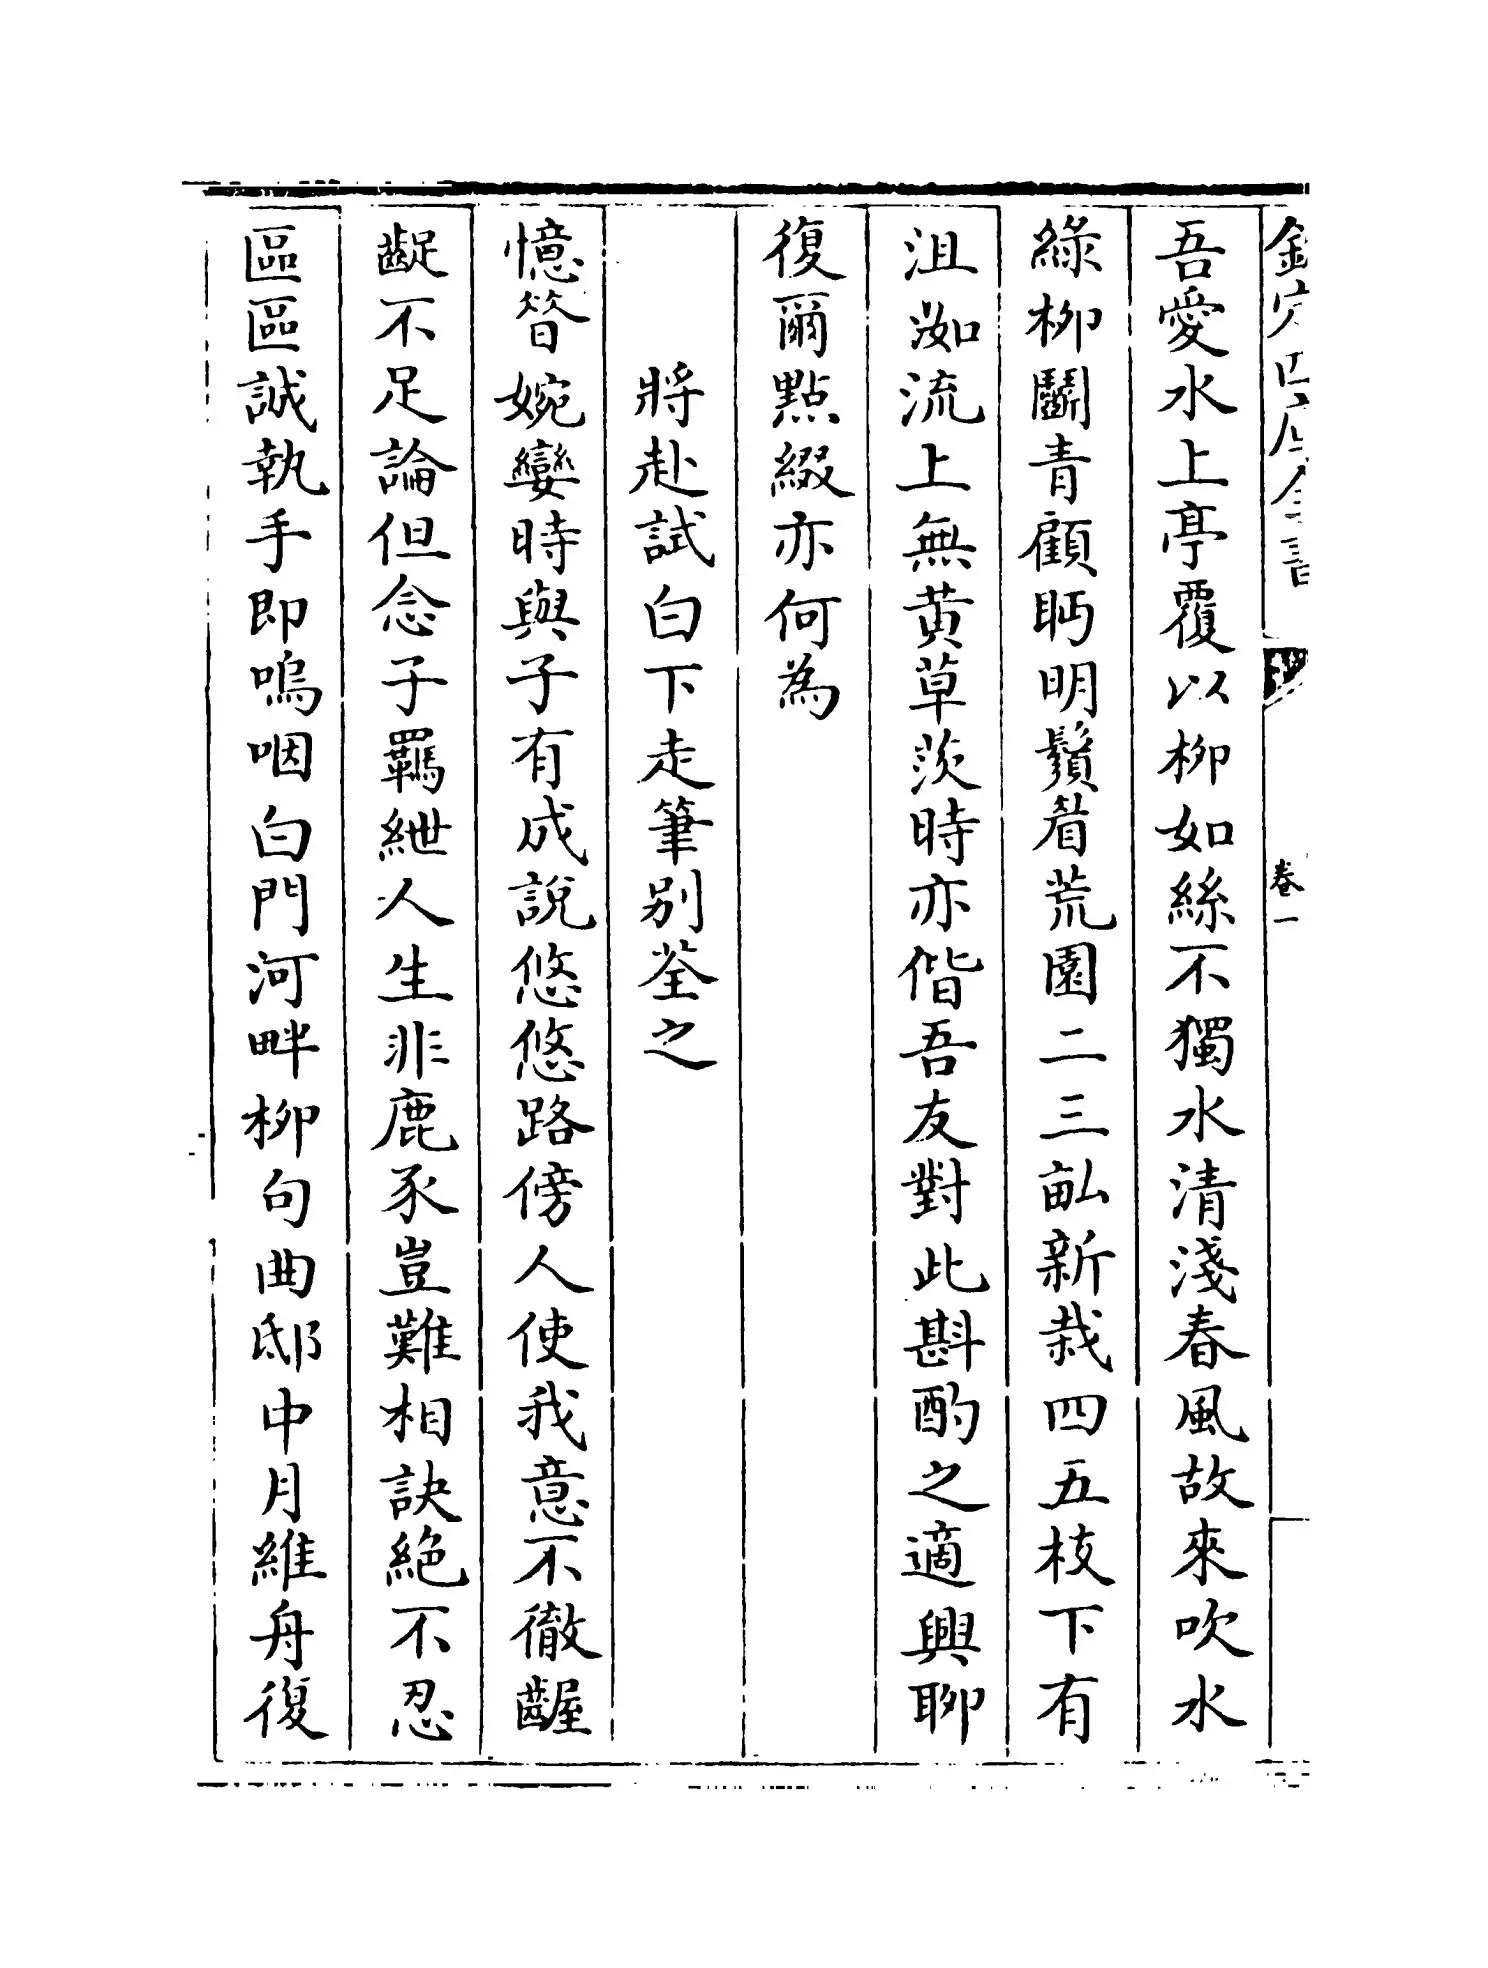 欽定四庫全書
卷一
吾愛水上亭覆以柳如絲不獨水清淺春風故來吹水
綠柳鬭青顧眄明鬚眉荒園二三畆新栽四五枝下有
沮洳流上無黄草茨時亦偕吾友對此斟酌之適興聊
復爾點綴亦何為
將赴試白下走筆别荃之
憶昝婉孌時與子有成說悠悠路傍人使我意不徹齷
齪不足論但念子羈紲人生非鹿豕豈難相訣絕不忍
區區誠執手即嗚咽白門河畔柳句曲邸中月維舟復